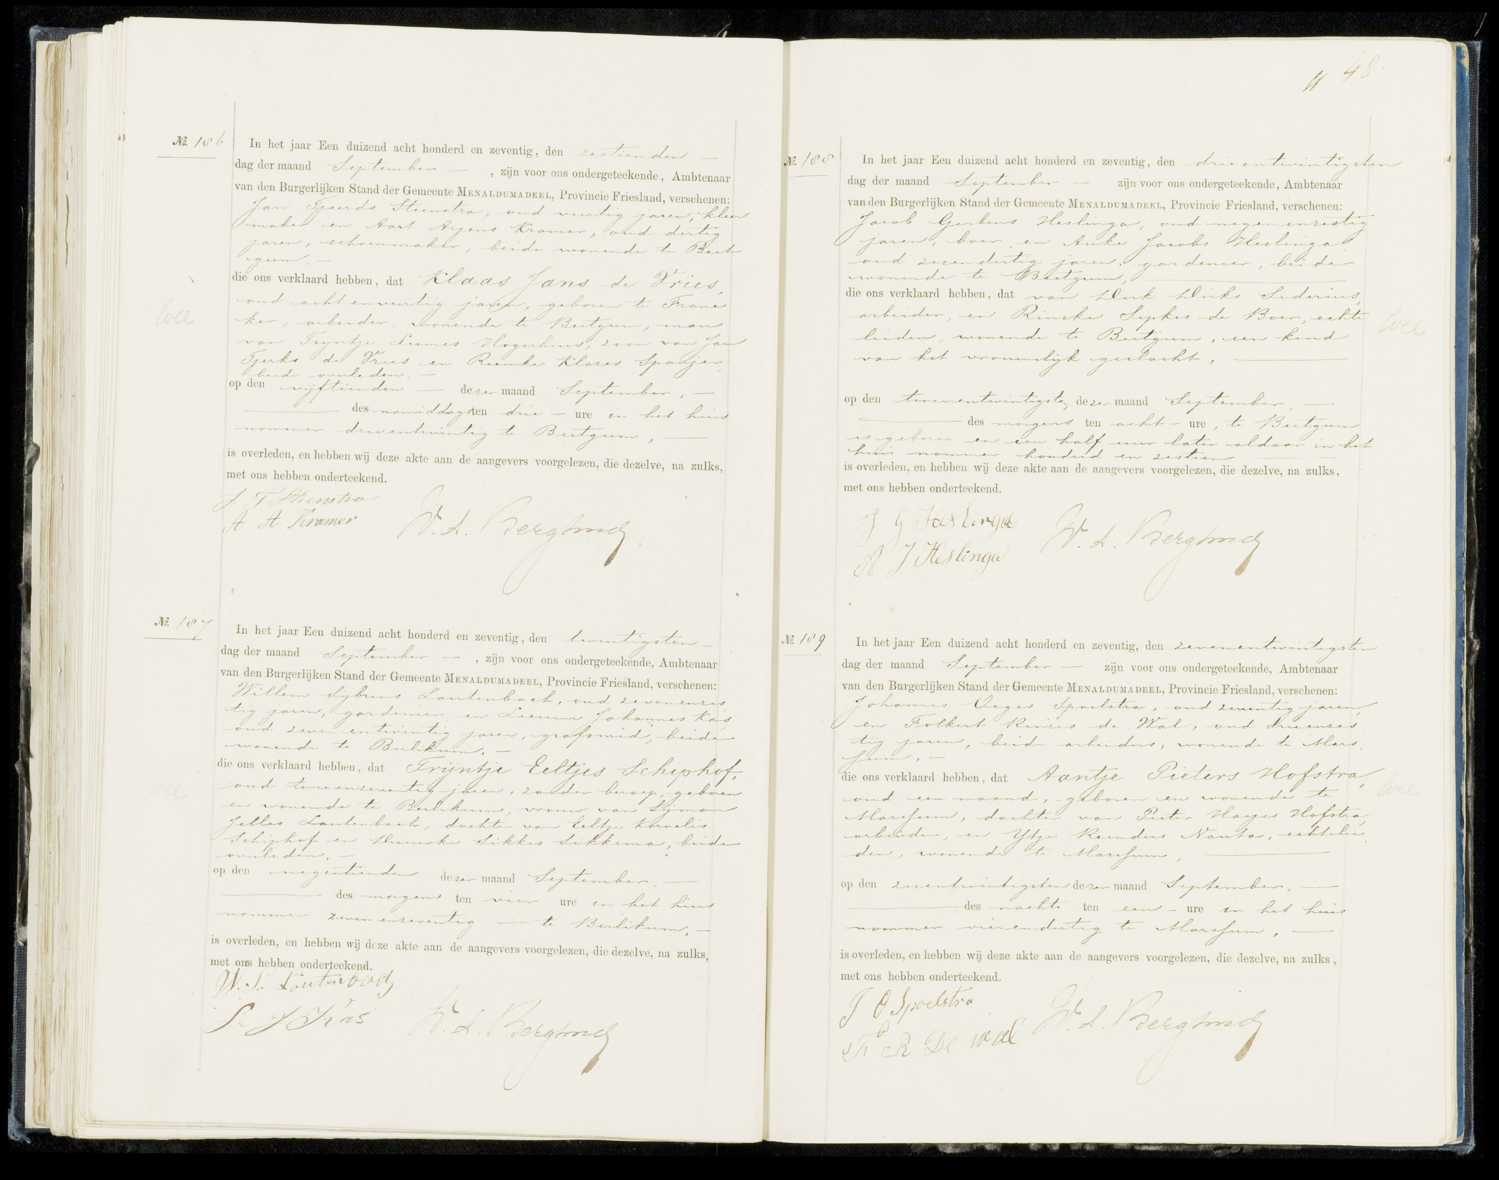 № 186
In het jaar Een duizend acht honderd en zeventig, den zestienden —
dag der maand September — , zijn voor ons ondergeteekende, Ambtenaar
van den Burgerlijken Stand der Gemeente MENALDUMADEEL, Provincie Friesland, verschenen:
Jan Tjeerds Stienstra, oud veertig jaren, kleer
maker en Aart Arjens Kramer, oud dertig
jaren, schoenmaker, beide wonende te Beet
gum, —
die ons verklaard hebben, dat Klaas Jans de Vries,
oud acht en veertig jaren, geboren te Frane
ker, arbeider, wonende te Beetgum, man
van Trijntje Hogerhuis, zoon van Jan
Tjerks de Vries en Reinske Klases Spanjer
beide overleden, —
op den vijftienden — dezer maand September, —
des namiddags ten drie — ure in het huis
nommer drieentwintig te Beetgum, —
is overleden, en hebben wij deze akte aan de aangevers voorgelezen, die dezelve, na zulks,
met ons hebben onderteekend.
J T Stienstra
A A Kramer
W. L. Bergsma
№ 187
In het jaar Een duizend acht honderd en zeventig, den twintigsten —
dag der maand September — , zijn voor ons ondergeteekende, Ambtenaar
van den Burgerlijken Stand der Gemeente MENALDUMADEEL, Provincie Friesland, verschenen:
Willem Sybrens Lautenbach, oud zevenenzes
tig jaren, gardenier en Johannes Kás
oud zeven entwintig jaren, grofsmid, beide
wonende te Berlikum, —
die ons verklaard hebben, dat Trijntje Eeltjes Schiphof,
oud tweeenzeventig jaren, zonder beroep, geboren
en wonende te Berlikum, vrouw van Symon
Jelles Lautenbach, dochter van Eeltje Kornelis
Schiphof en Sikkes Sikkema, beide
overleden, —
op den negentienden dezer maand September, —
des morgens ten vier ure in het huis
nommer zeven enzeventig — te Berlikum, —
is overleden, en hebben wij deze akte aan de aangevers voorgelezen, die dezelve, na zulks,
met ons hebben onderteekend.
W. S. Lautenbach
S J Kás
W. L. Bergsma
48
№ 188
In het jaar Een duizend acht honderd en zeventig, den drieentwintigsten
dag der maand September — zijn voor ons ondergeteekende, Ambtenaar
van den Burgerlijken Stand der Gemeente MENALDUMADEEL, Provincie Friesland, verschenen:
Jacob Gerbens Heslinga, oud negen enzestig
jaren, boer en Anke Jacobs Heslinga
oud zevendertig jaren, gardenier, beide
wonende te Beetgum,
die ons verklaard hebben, dat van Dirk Dirks Siderius,
arbeider, en Rinske Sipkes de Boer, echte
lieden, wonende te Beetgum, een kind
van het vrouwelijk geslacht, —
op den tweeentwintigsten dezer maand September, —
des morgens ten acht — ure, te Beetgum
is geboren en een half uur later aldaar in het
huis nommer honderd en zestien —
is overleden, en hebben wij deze akte aan de aangevers voorgelezen, die dezelve, na zulks,
met ons hebben onderteekend.
J G Haslinga
A J Heslinga
W. L. Bergsma
№ 189
In het jaar Een duizend acht honderd en zeventig, den zevenentwintigsten
dag der maand September — zijn voor ons ondergeteekende, Ambtenaar
van den Burgerlijken Stand der Gemeente MENALDUMADEEL, Provincie Friesland, verschenen:
Johannes Spoelstra, oud zeventig jaren,
en Folkert Reins de Wal, oud drieenzes
tig jaren, beide arbeiders, wonende te Mars
sum, —
die ons verklaard hebben, dat Aantje Pieters Hofstra,
oud een maand, geboren en wonende te
Marssum, dochter van Pieter Hofstra,
arbeider, en Ytje Reinders Nauta, echtelie
den, wonende te Marssum, —
op den zesentwintigsten dezer maand September, —
des nachts ten een — ure in het huis
nommer vierendertig te Marssum, —
is overleden, en hebben wij deze akte aan de aangevers voorgelezen, die dezelve, na zulks,
met ons hebben onderteekend.
J O Spoelstra
F R De wal
W. L. Bergsma